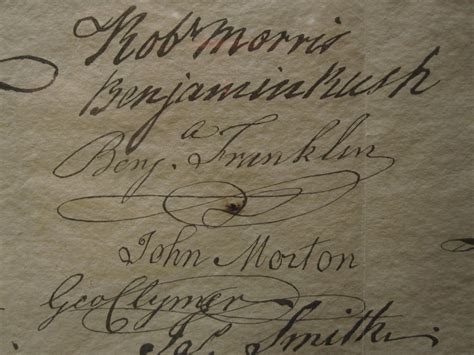 Robt Morris
Benjamin Rush
a
Benj. Franklin
John Morton
Geo Clymer
Jas. Smith.